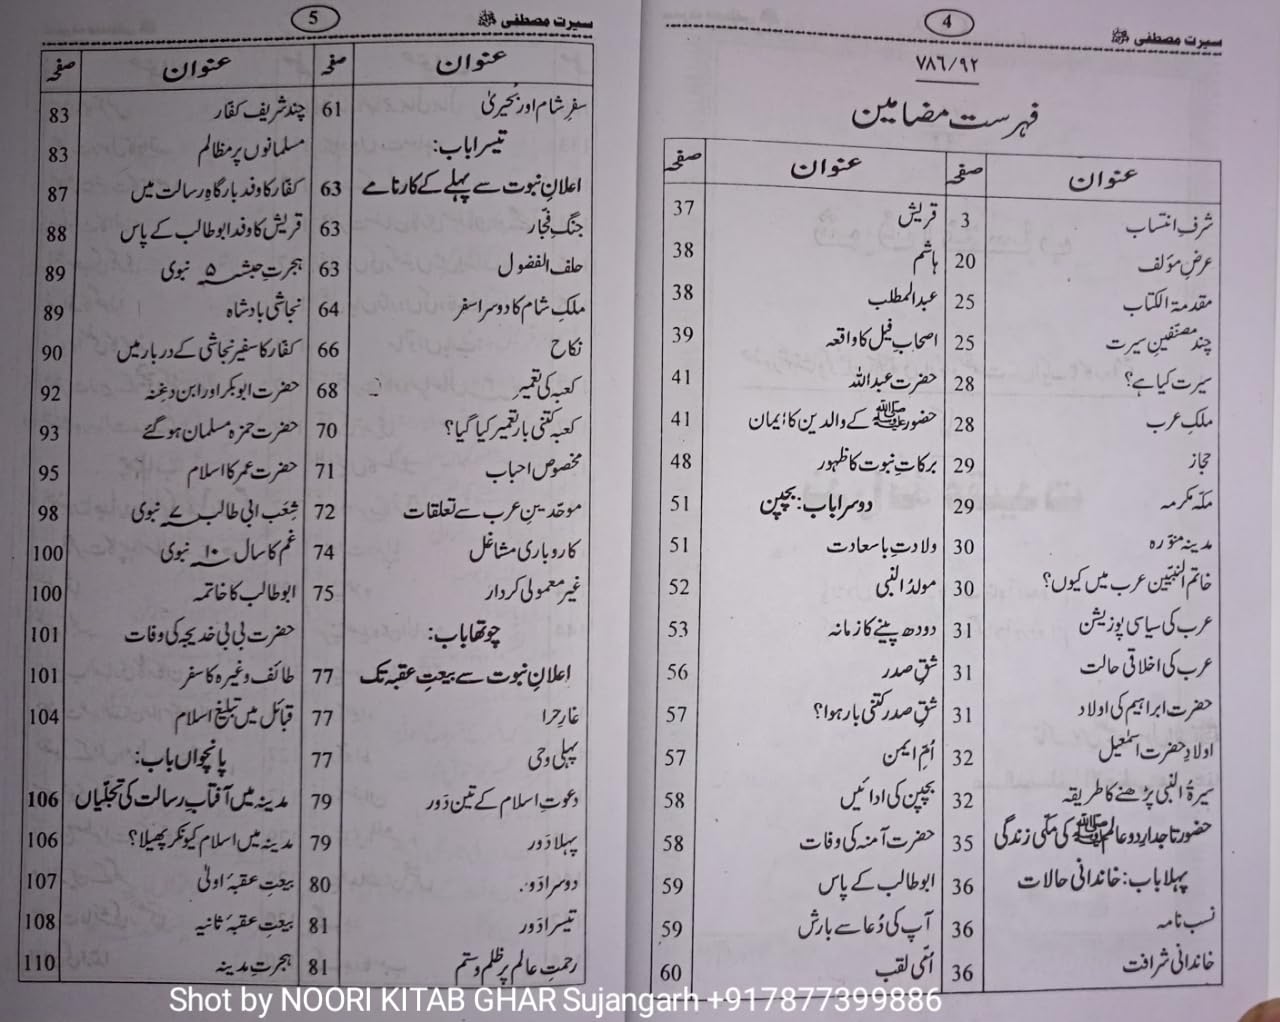 سیرت مصطفی ﷺ
4
۷۸٦/۹۲
فہرست مضامین
عنوان صفحہ
شرفِ انتساب 3
عرضِ مؤلف 20
مقدمۃ الکتاب 25
چند مصنفینِ سیرت 25
سیرت کیا ہے؟ 28
ملکِ عرب 28
حجاز 29
مکہ مکرمہ 29
مدینہ منورہ 30
خاتم النبیین عرب میں کیوں؟ 30
عرب کی سیاسی پوزیشن 31
عرب کی اخلاقی حالت 31
حضرت ابراہیم کی اولاد 31
اولادِ حضرت اسمٰعیل 32
سیرۃُ النبی پڑھنے کا طریقہ 32
حضور تاجدارِ دو عالم ﷺ کی مکی زندگی 35
پہلا باب: خاندانی حالات 36
نسب نامہ 36
خاندانی شرافت 36
عنوان صفحہ
قریش 37
ہاشم 38
عبدالمطلب 38
اصحابِ فیل کا واقعہ 39
حضرت عبداللہ 41
حضور ﷺ کے والدین کا ایمان 41
برکاتِ نبوت کا ظہور 48
دوسرا باب: بچپن 51
ولادتِ باسعادت 51
مولدُ النبی 52
دودھ پینے کا زمانہ 53
شقِ صدر 56
شقِ صدر کتنی بار ہوا؟ 57
اُمِّ ایمن 57
بچپن کی ادائیں 58
حضرت آمنہ کی وفات 58
ابو طالب کے پاس 59
آپ کی دُعا سے بارش 59
اُمّی لقب 60
سیرت مصطفی ﷺ
5
عنوان صفحہ
سفرِ شام اور بُحیریٰ 61
تیسرا باب:
اعلانِ نبوت سے پہلے کے کارنامے 63
جنگِ فجّار 63
حلف الفضول 63
ملکِ شام کا دوسرا سفر 64
نکاح 66
کعبہ کی تعمیر 68
کعبہ کتنی بار تعمیر کیا گیا؟ 70
مخصوص احباب 71
موحّدینِ عرب سے تعلقات 72
کاروباری مشاغل 74
غیر معمولی کردار 75
چوتھا باب:
اعلانِ نبوت سے بیعتِ عقبہ تک 77
غارِ حرا 77
پہلی وحی 77
دعوتِ اسلام کے تین دَور 79
پہلا دَور 79
دوسرا دَور 80
تیسرا دَور 81
رحمتِ عالم پر ظلم و ستم 81
عنوان صفحہ
چند شریف کفار 83
مسلمانوں پر مظالم 83
کفار کا وفد بارگاہِ رسالت میں 87
قریش کا وفد ابو طالب کے پاس 88
ہجرتِ حبشہ ۵ نبوی 89
نجاشی بادشاہ 89
کفار کا سفیر نجاشی کے دربار میں 90
حضرت ابوبکر اور ابن دغنہ 92
حضرت حمزہ مسلمان ہو گئے 93
حضرت عمر کا اسلام 95
شِعَب ابی طالب ۷ نبوی 98
غم کا سال ۱۰ نبوی 100
ابو طالب کا خاتمہ 100
حضرت بی بی خدیجہ کی وفات 101
طائف وغیرہ کا سفر 101
قبائل میں تبلیغِ اسلام 104
پانچواں باب:
مدینہ میں آفتابِ رسالت کی تجلّیاں 106
مدینہ میں اسلام کیونکر پھیلا؟ 106
بیعتِ عقبۂ اولیٰ 107
بیعتِ عقبۂ ثانیہ 108
ہجرتِ مدینہ 110
Shot by NOORI KITAB GHAR Sujangarh +917877399886